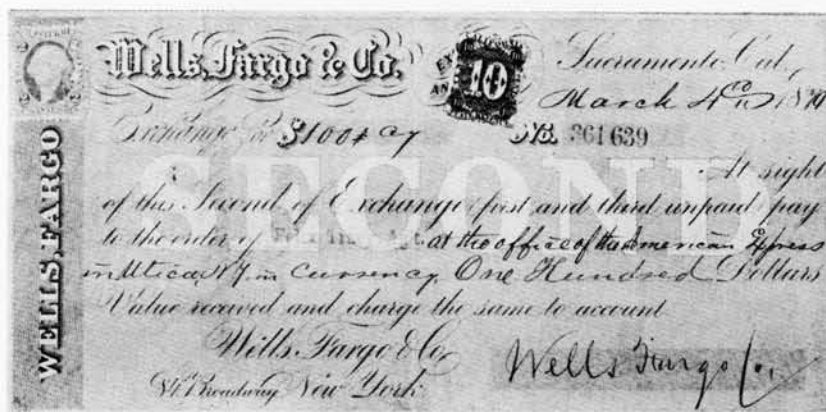 Wells, Fargo & Co.
10
Sacramento, Cal.,
March 4th 1870
Exchange for $100 cy
No. 361639
WELLS, FARGO
SECOND
At sight
of this Second of Exchange (first and third unpaid) pay
to the order of at the office of the American Express
in Utica N.Y. in Currency One Hundred Dollars
Value received and charge the same to account
Wells, Fargo & Co.
Broadway, New York.
Wells Fargo Co.